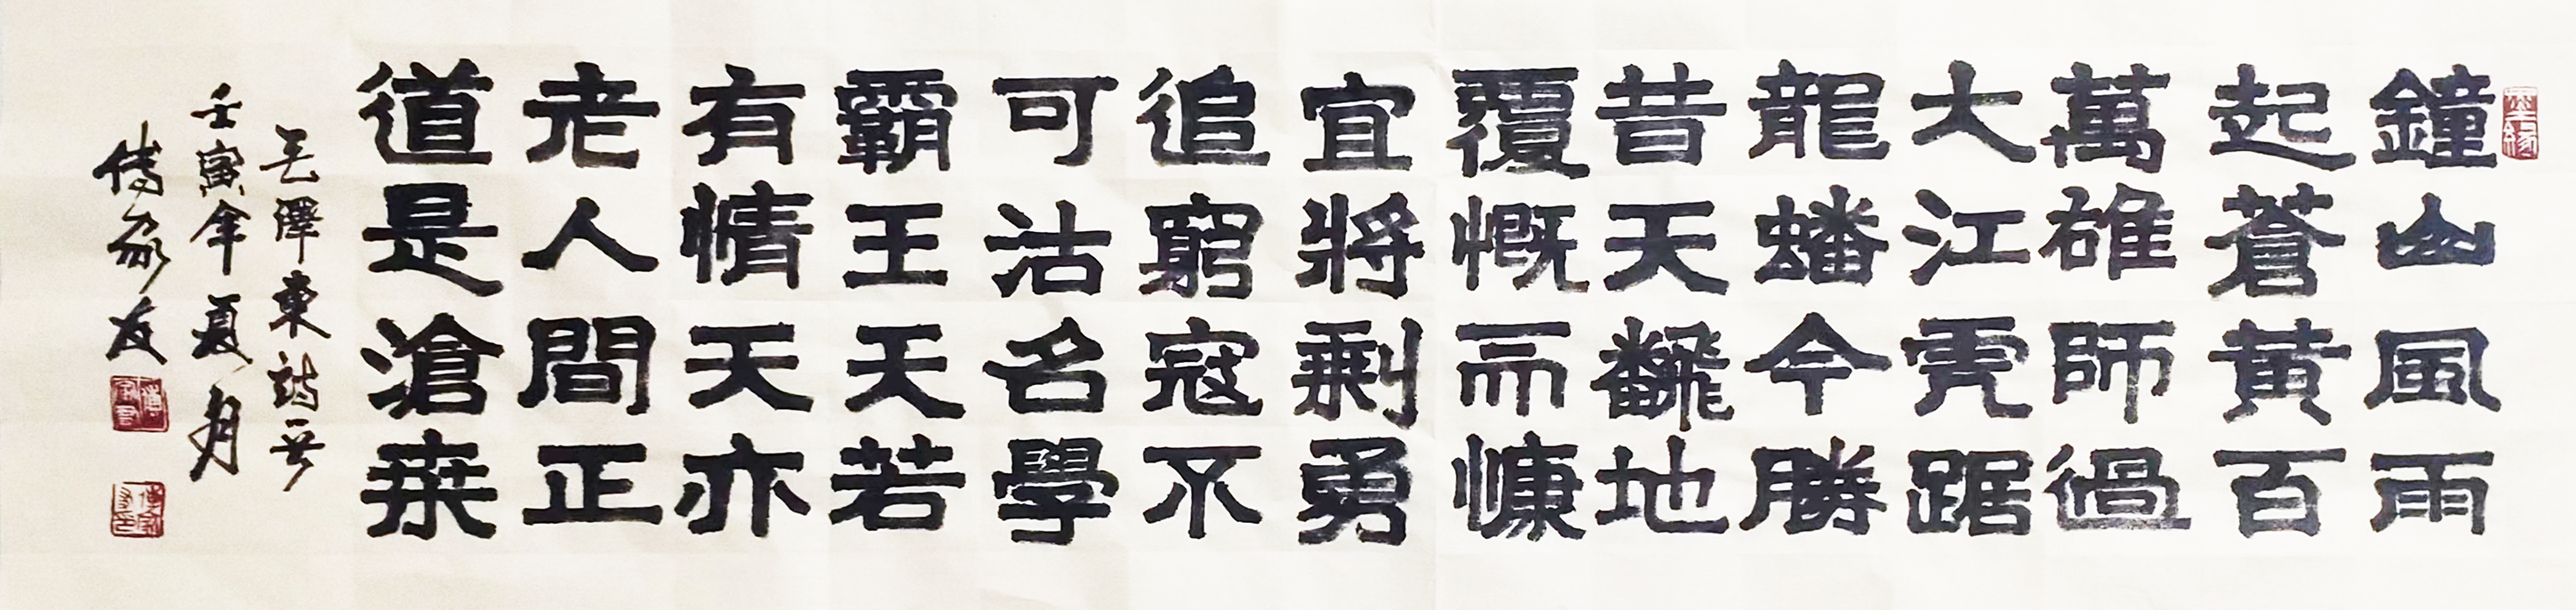 鐘山風雨
起蒼黃百
萬雄師過
大江虎踞
龍蟠今勝
昔天飜地
覆慨而慷
宜將剩勇
追窮寇不
可沽名學
霸王天若
有情天亦
老人間正
道是滄桒
毛澤東詩一首
壬寅年夏月
傅家友